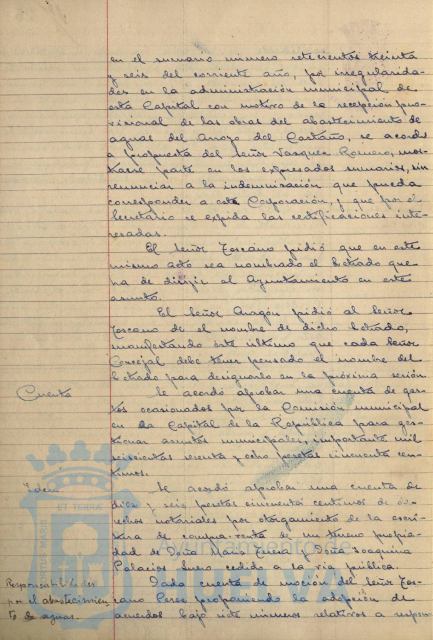 en el sumario número setecientos treinta
y seis del corriente año, por irregularida-
des en la administración municipal de
esta Capital con motivo de la recepción pro-
visional de las obras del abastecimiento de
aguas del Arroyo del Castaño, se acordó
a propuesta del Señor Vasquez Romero, mos-
trarse parte en los expresados sumarios, sin
renunciar a la indemnización que pueda
corresponder a esta Corporación, y que por el
Secretario se expida las certificaciones inte-
resadas.
El Señor Toscano pidió que en este
mismo acto sea nombrado el Letrado que
ha de dirigir al Ayuntamiento en este
asunto.
El Señor Aragón pidió al Señor
Toscano de el nombre de dicho Letrado,
manifestando éste último que cada Señor
Concejal debe tener pensado el nombre del
Letrado para designarlo en la próxima sesión.
Cuenta
Se acordó aprobar una cuenta de gas-
tos ocasionados por la Comisión municipal
en la Capital de la República para ges-
tionar asuntos municipales, importante mil
seiscientas sesenta y ocho pesetas cincuenta cen-
timos.
Idem
Se acordó aprobar una cuenta de
diez y seis pesetas cincuenta centimos de de-
rechos notariales por otorgamiento de la escri-
tura de compra-venta de un terreno propie-
dad de Doña María Luisa y Doña Joaquina
Palacios cedido a la vía pública.
Responsabilidades
por el abastecimien-
to de aguas.
Dada cuenta de moción del Señor Tos-
cano Perez proponiendo la adopción de
acuerdos bajo siete números relativos a
ET TERRA